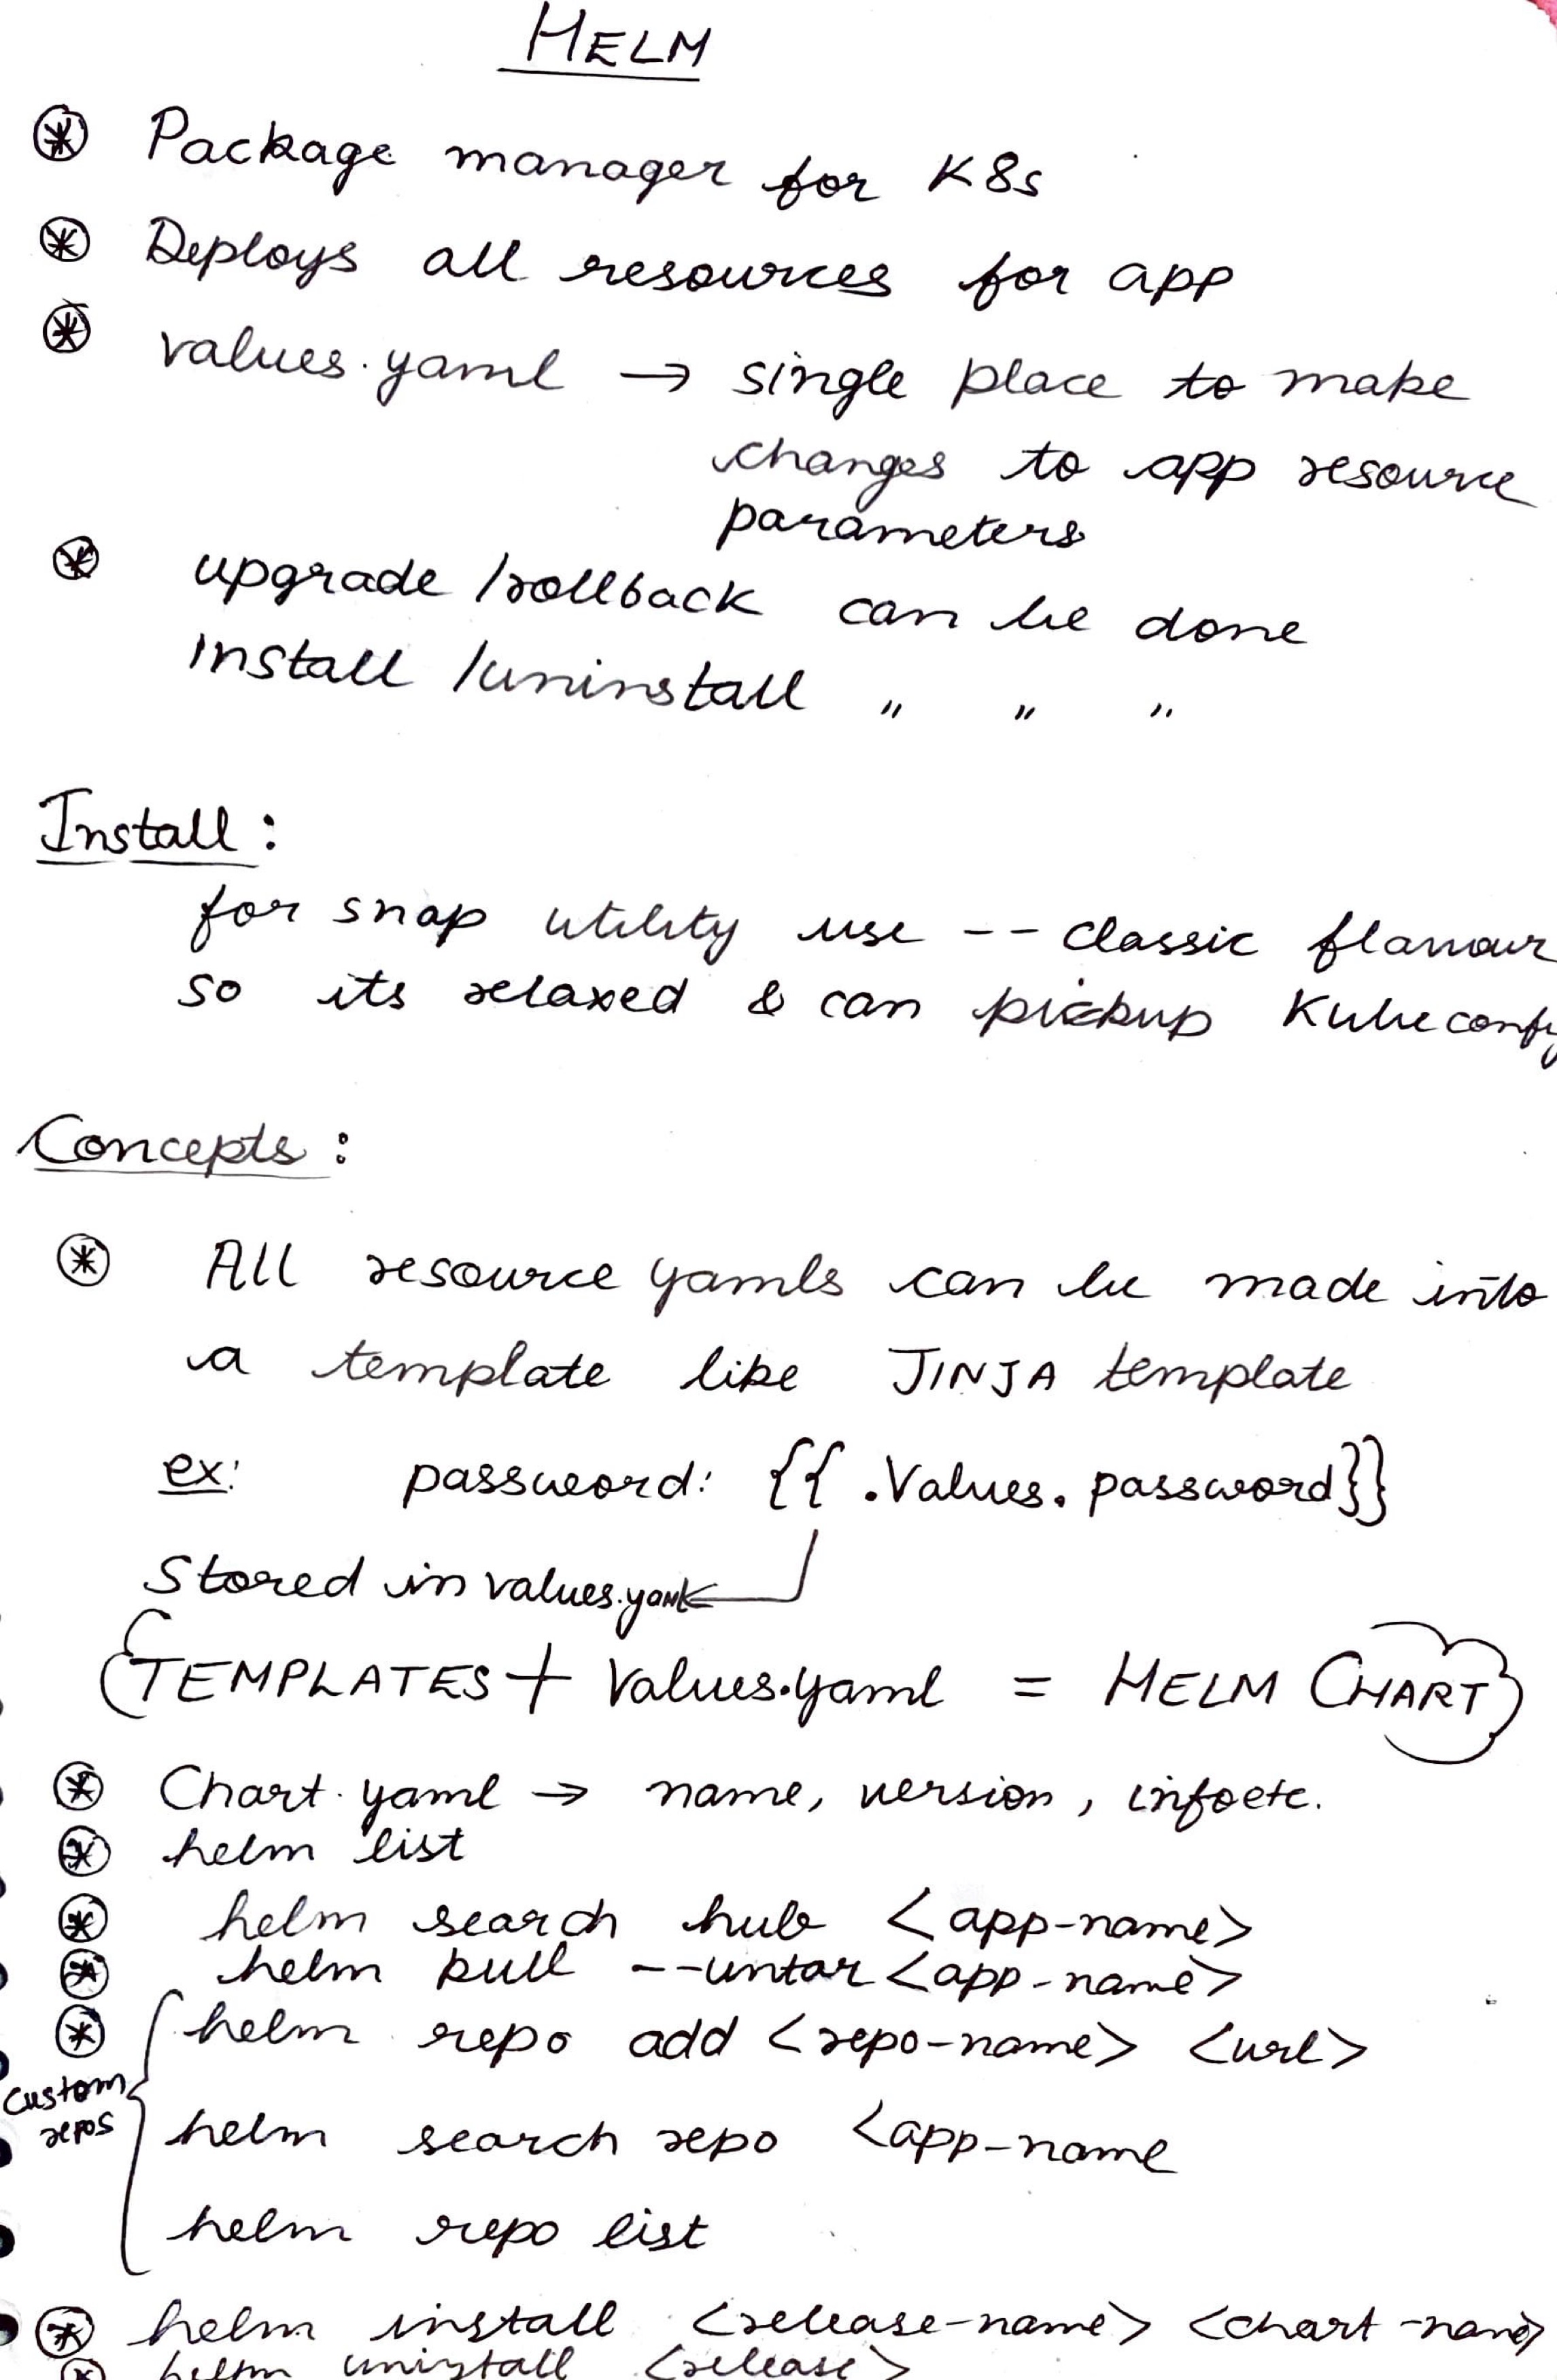 HELM
Package manager for K8s
Deploys all resources for app
values.yaml → single place to make
changes to app resource
parameters
upgrade /rollback can be done
install /uninstall " " "
Install :
for snap utility use -- classic flavour
so its relaxed & can pickup Kubeconfig
Concepts :
All resource yamls can be made into
a template like JINJA template
ex: password: {{ .Values.password}}
Stored in values.yaml
TEMPLATES + Values.yaml = HELM CHART
Chart.yaml → name, version, info etc.
helm list
helm search hub <app-name>
helm pull --untar <app-name>
helm repo add <repo-name> <url>
custom
repos
helm search repo <app-name
helm repo list
helm install <release-name> <chart-name>
helm uninstall <release>